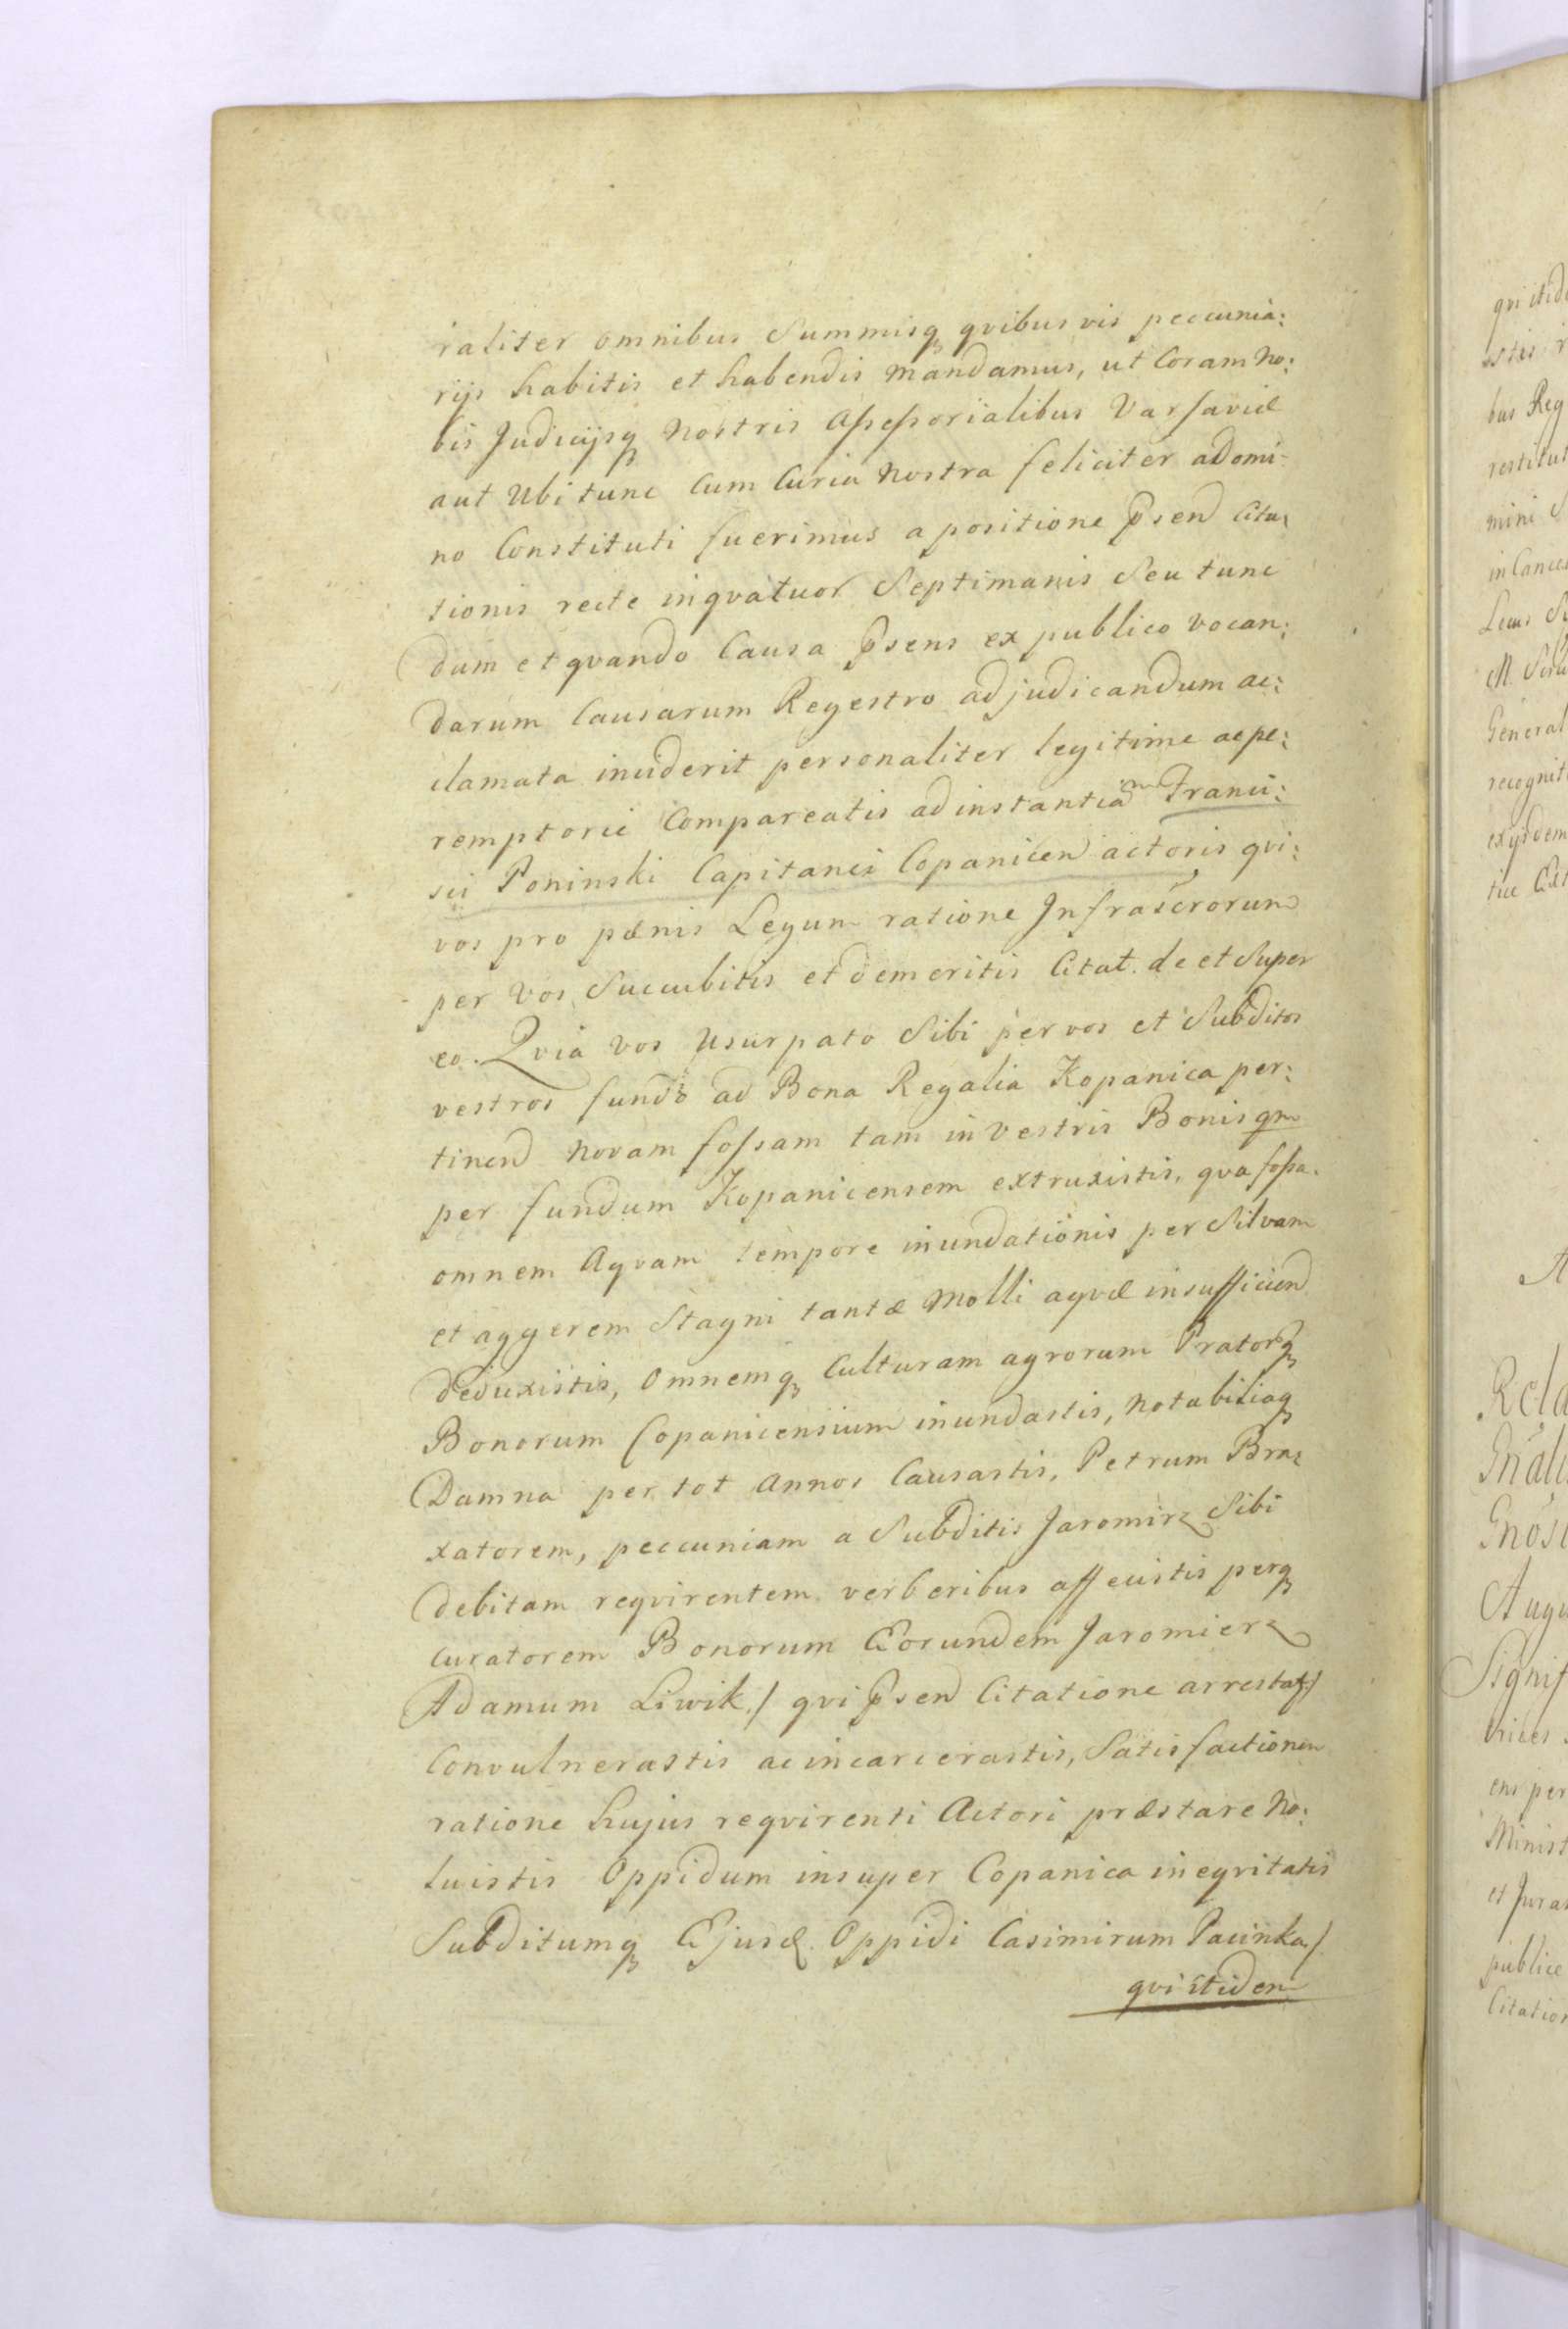 raliter omnibus Summisq quibus vis peccunia:
rijs habitis et habendis mandamus, ut Coram No:
bis Judicijsq nostris Assessorialibus Varsaviæ
aut Ubi tunc Cum Curia nostra feliciter a domi-
no Constituti fuerimus a positione Psend Cita:
tionis recte in qvatuor Septimanis Seu tunc
dum et qvando Causa Psens ex publico vocan:
darum Causarum Regestro ad judicandum ac:
clamata inciderit personaliter legitime ac pe:
remptorie Compareatis ad instantiam Franci:
sci Poninski Capitanei Copanicen actoris qvi:
vos pro pænis Legum ratione Infrascrorum
per Vos Succubitis et demeritis Citat. de et Super
eo. Qvia vos Usurpato Sibi per vos et Subditos
vestros fundo ad Bona Regalia Kopanica per:
tinend Novam fossam tam in vestris Bonis qm
per fundum Kopanicensem extruxistis, qva fossa
omnem Aqvam tempore inundationis per Silvam
et aggerem Stagni tantæ Molli aqvæ insufficien
deduxistis, Omnemq Culturam agrorum Pratorq
Bonorum Copanicensium inundastis, Notabiliaq
Damna per tot Annos Causastis, Petrum Bra:
xatorem, peccuniam a Subditis Jaromirz Sibi
debitam reqvirentem verberibus affecistis perq
curatorem Bonorum Eorundem Jaromierz
Adamum Liwik / qvi Psend Citatione arrestatr /
Convulnerastis ac incarcerastis, Satisfactionem
ratione hujus reqvirenti Actori præstare No:
luistis Oppidum insuper Copanica ineqvitatis
Subditumq Ejusd. Oppidi Casimirum Pacinka /
qvi itidem
qvi itid
bus Reg
restitut
mini S
in Cance
General
recognit
ex ijsdem
Rela
Gnali
Gnosi
Augu
Signif
ens per
Minist
et Jurat
publice
Citation